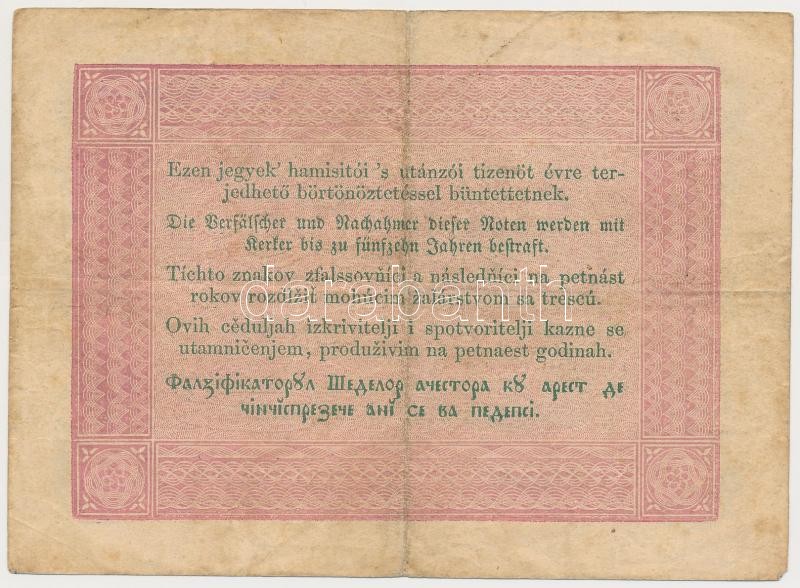 Ezen jegyek' hamisitói 's utánzói tizenöt évre ter-
jedhető börtönöztetéssel büntettetnek.
Die Verfälscher und Nachahmer dieser Noten werden mit
Kerker bis zu fünfzehn Jahren bestraft.
Tíchto znakov zfalssovňíci a následňíci na petnást
rokov rozólžit mohúcim žalárstvom sa tréscú.
Ovih cěduljah izkrivitelji i spotvoritelji kazne se
utamničenjem, produživim na petnaest godinah.
Фалзіфікаторꙋл Шеделор ачестора кꙋ арест де
чінчіспрезече ані се ва педепсі.
darabanth